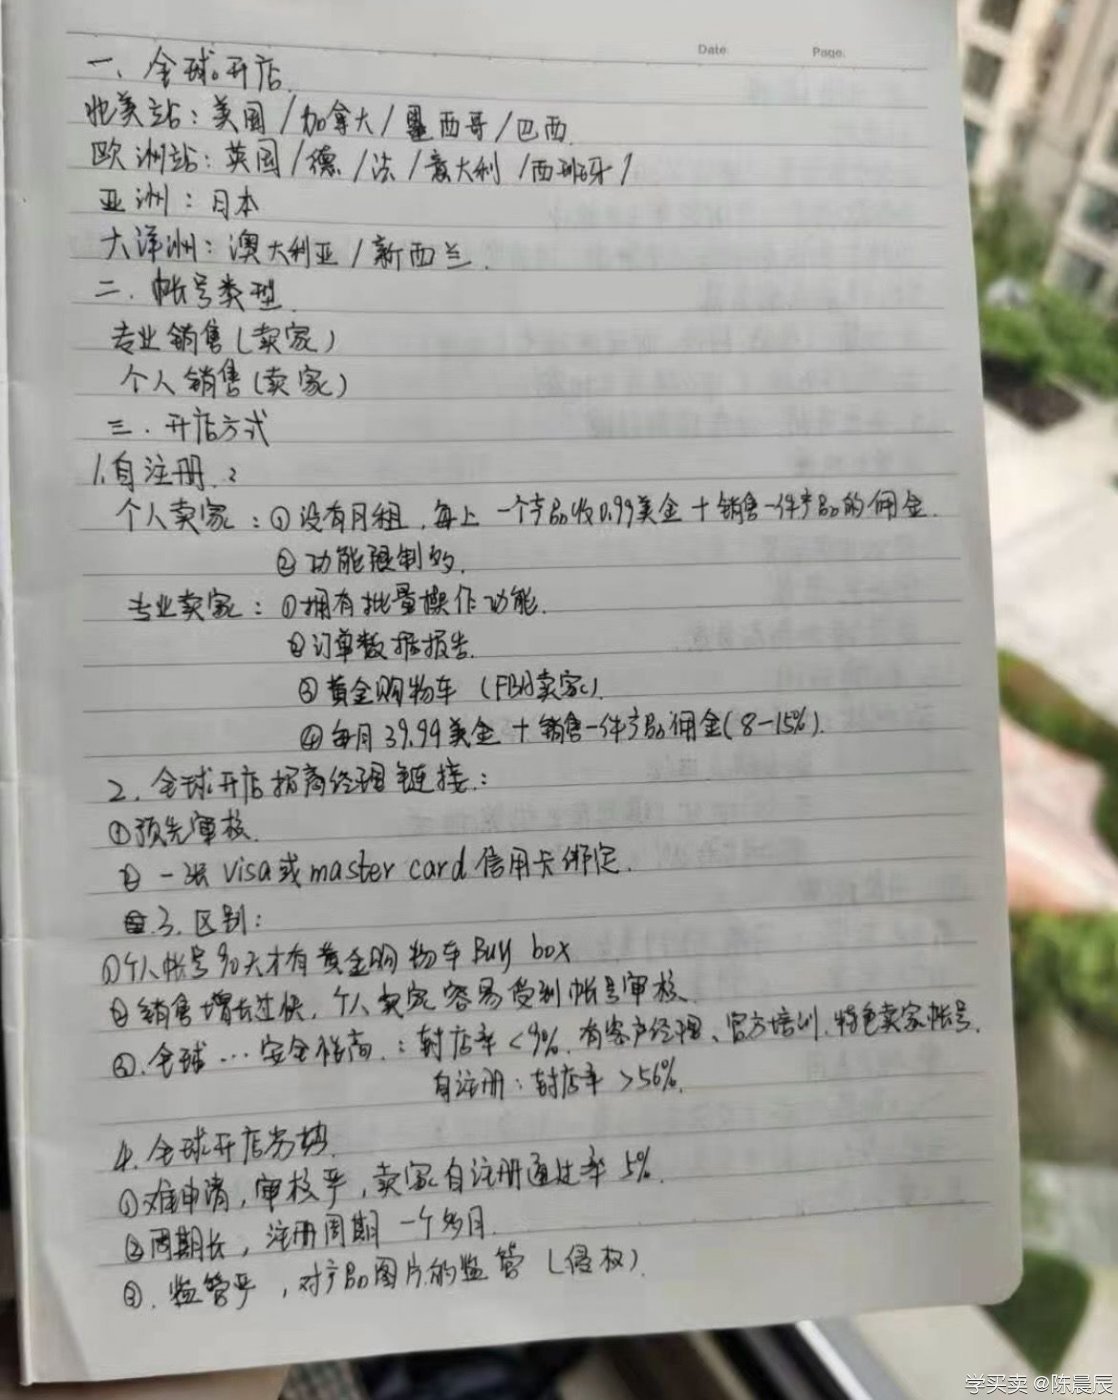 Date.
Page.
一、全球开店
北美站：美国/加拿大/墨西哥/巴西
欧洲站：英国/德/法/意大利/西班牙/
亚洲：日本
大洋洲：澳大利亚/新西兰.
二.帐号类型
专业销售(卖家)
个人销售(卖家)
三.开店方式
1.自注册.:
个人卖家：①没有月租,每上一个产品收0.99美金+销售一件产品的佣金.
②功能限制的.
专业卖家：①拥有批量操作功能.
②订单数据报告.
③黄金购物车(FBA卖家).
④每月39.99美金+销售一件产品佣金(8-15%).
2.全球开店招商经理链接.:
①预先审核.
②一张visa或master card信用卡绑定.
3.区别:
①个人帐号90天才有黄金购物车Buy box
②销售增长过快,个人卖家容易受到帐号审核.
③.全球…安全.:封店率<9%.有客户经理、官方培训.特色卖家帐号.
自注册:封店率>56%.
4.全球开店劣势.
①难申请,审核严,卖家自注册通过率5%.
②周期长,注册周期一个多月.
③.监管严,对产品图片的监管(侵权).
学买卖 @陈晨辰